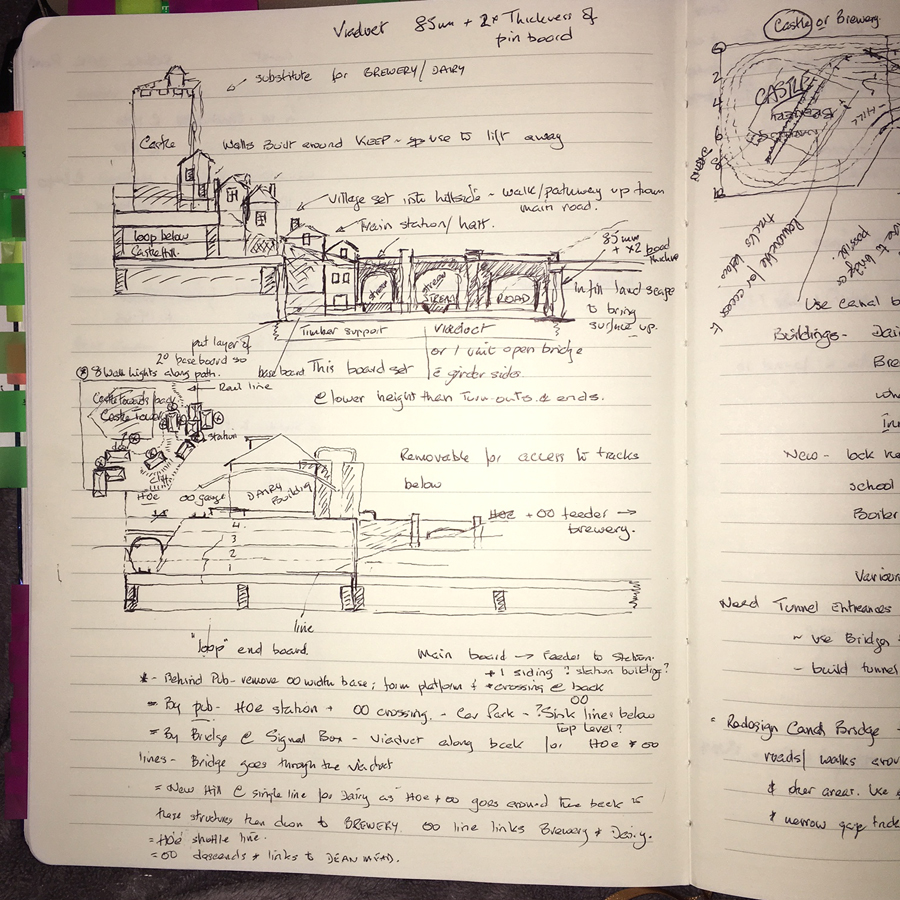 Viaduct 85mm + 2x Thickness of
pin board
substitute for BREWERY/DAIRY
Castle
Walls Built around KEEP - use to lift away
Village set into hillside - walk/pathway up from
main road.
Train station/halt.
loop below
Castle Hill.
85mm
+ x2 board
thickness
STREAM
ROAD
Infill landscape
to bring
surface up.
put layer of
baseboard so
Timber support
Viaduct
or 1 unit open bridge
& girder sides.
baseboard This board set
@ lower height than Turnouts & ends.
8 Walk lights along path.
Rail line
Castle towards back
Castle Tower
station
Cliff
HOe
OO gauge
DAIRY
Building
Removable for access to tracks
below
HOe + OO feeder →
brewery.
4
3
2
1
line
"loop" end board.
Main board → Feeder to Station.
+ 1 siding ? station building?
* - Behind Pub - remove OO width base; form platform & crossing @ back
= By pub - HOe station + OO crossing. - Car Park - ? Sink OO lines below
Top Level?
= By Bridge @ Signal Box - Viaduct along back for HOe & OO
lines - Bridge goes through the viaduct
= New Hill @ single line for Dairy as HOe + OO goes around the back
these structures then down to BREWERY. OO line links Brewery & Dairy.
= HOe shuttle line.
= OO descends & links to DEAN MEAD.
Castle or Brewery
0
2
4
6
8
10
CASTLE
HILL
Removable for access to
tracks below
possible.
Use canal b
Buildings - Dai
Bre
Inn
New - lock ke
school
Boiler
Various
Need Tunnel Entrances
~ use Bridges
- build tunnel
Redesign Canal Bridge
roads/ walks arou
& other areas. Use
& narrow gap track